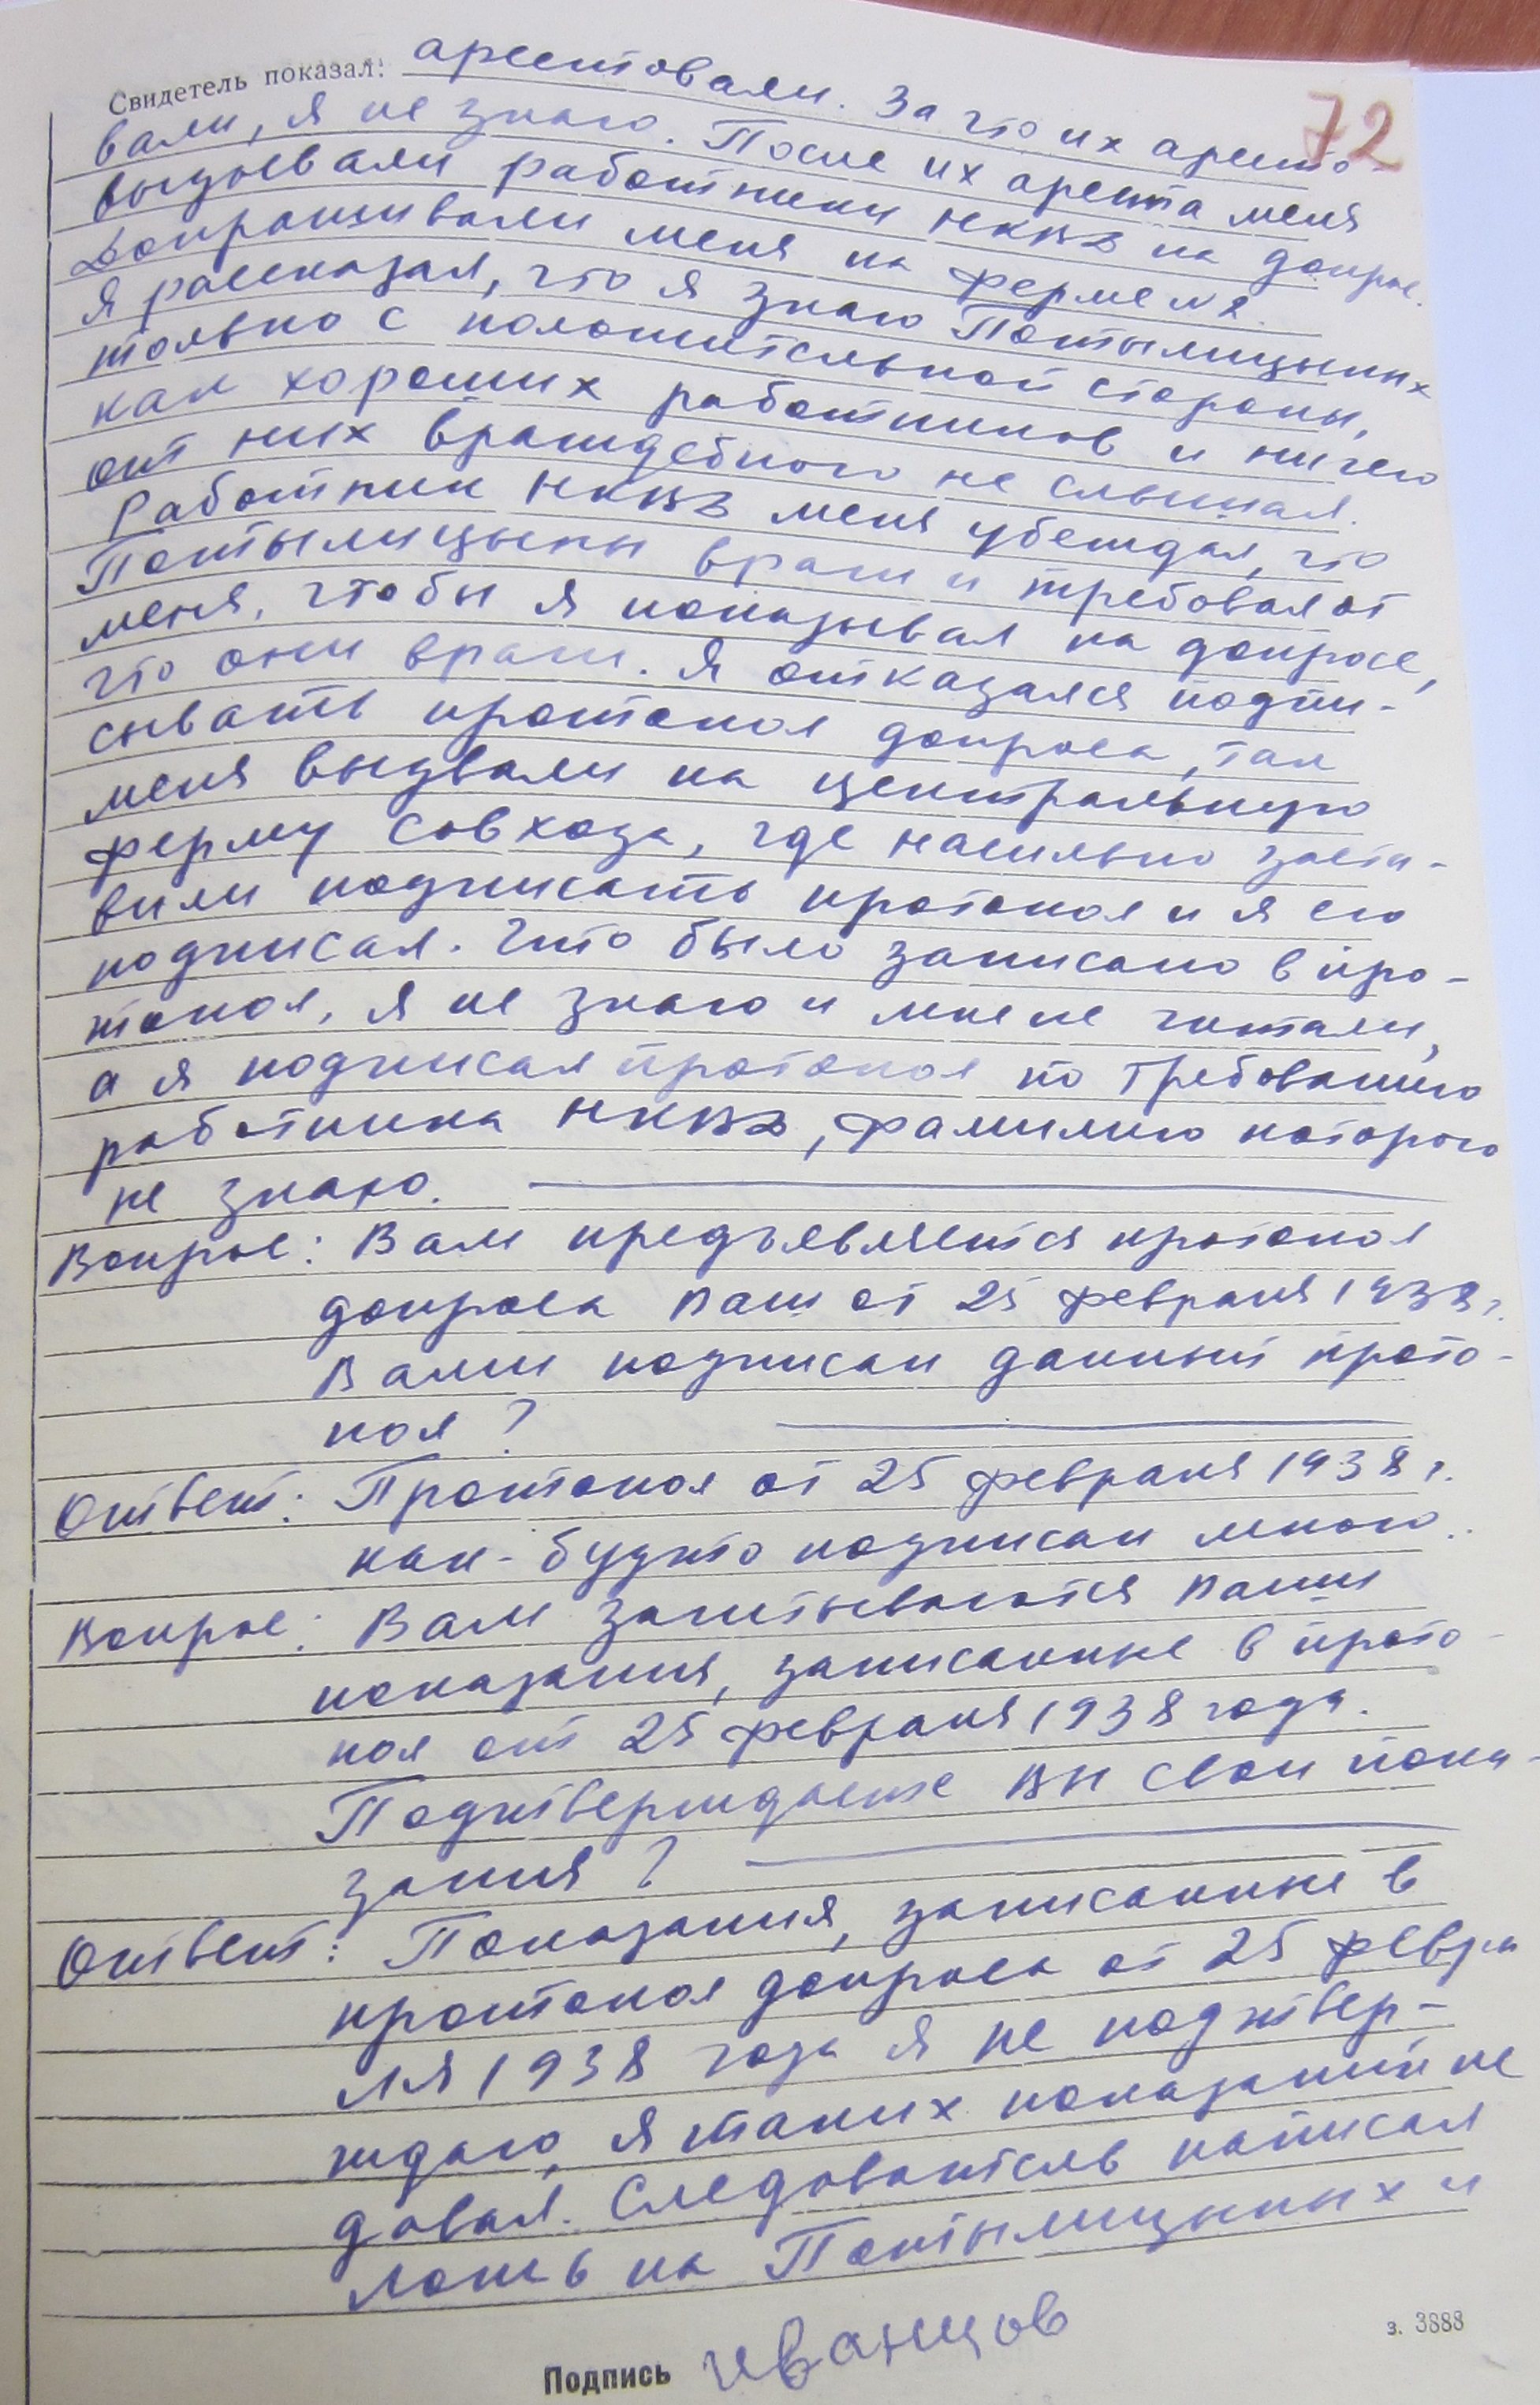 72
Свидетель показал: арестовали. За что их аресто-
вали, я не знаю. После их ареста меня
вызывали работники НКВД на допрос.
Допрашивали меня на ферме №2.
Я рассказал, что я знаю Потылицыных
только с положительной стороны,
как хороших работников и ничего
от них враждебного не слышал.
Работник НКВД меня убеждал, что
Потылицыны враги и требовал от
меня, чтобы я показывал на допросе,
что они враги. Я отказался подпи-
сывать протокол допроса, так
меня вызвали на центральную
ферму совхоза, где насильно заста-
вили подписать протокол и я его
подписал. Что было записано в про-
токол, я не знаю и мне не читали,
а я подписал протокол по требованию
работника НКВД, фамилию которого
не знаю.
Вопрос: Вам предъявляется протокол
допроса Ваш от 25 февраля 1938 г.
Вами подписан данный прото-
кол?
Ответ: Протокол от 25 февраля 1938 г.
как-будто подписан мною.
Вопрос: Вам зачитываются Ваши
показания, записанные в прото-
кол от 25 февраля 1938 года.
Подтверждаете Вы свои пока-
зания?
Ответ: Показания, записанные в
протокол допроса от 25 февра
ля 1938 года я не подтвер-
ждаю, я таких показаний не
давал. Следователь написал
ложь на Потылицыных и
Подпись Иванцов
з. 3888